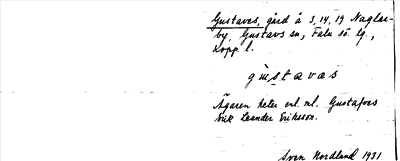 Gustavas, gård å 3,14,19 Naglar-
by, Gustavs sn, Falu sö. lg.,
Kopp. l.
gùstavas
Ägaren heter enl. ml. Gustafvas
Erik Leander Eriksson.
Sven Nordlund 1931